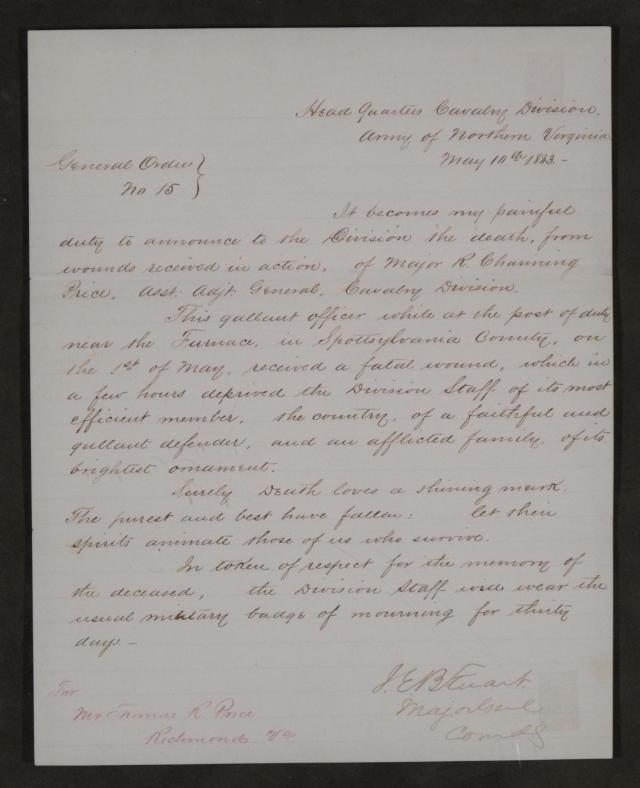 Head Quarters Cavalry Division.
Army of Northern Virginia
May 10th 1863.-
General Order }
No 15
It becomes my painful
duty to announce to the Division the death, from
wounds received in action, of Major R. Channing
Price, Asst. Adjt. General, Cavalry Division.
This gallant officer while at the post of duty
near the Furnace, in Spottsylvania County, on
the 1st of May, received a fatal wound, which in
a few hours deprived the Division Staff of its most
efficient member, the country, of a faithful and
gallant defender, and an afflicted family, of its
brightest ornament.
Surely Death loves a shining mark.
The purest and best have fallen: let their
spirits animate those of us who survive.
In token of respect for the memory of
the deceased, the Division Staff will wear the
usual military badge of mourning for thirty
days.-
J. E. B. Stuart.
Maj. Genl
Comdg
For
Mr Thomas R Price
Richmond Va